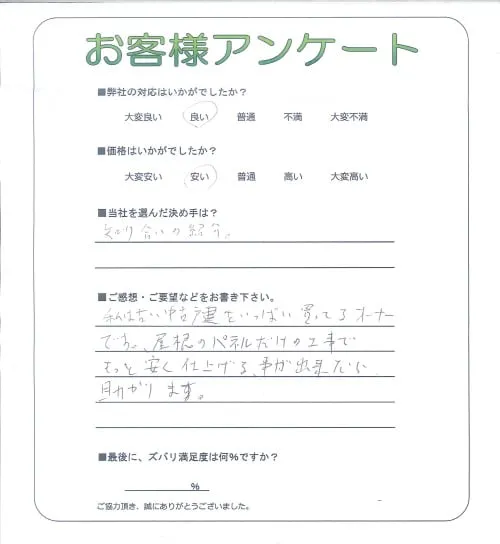 お客様アンケート
■弊社の対応はいかがでしたか？
大変良い 良い 普通 不満 大変不満
■価格はいかがでしたか？
大変安い 安い 普通 高い 大変高い
■当社を選んだ決め手は？
知り合いの紹介。
■ご感想・ご要望などをお書き下さい。
私は古い中古 をいっぱい買ってるオーナー
です。屋根のパネルだけの工事で
もっと安く仕上げる、事が出来 に、
助かります。
■最後に、ズバリ満足度は何％ですか？
％
ご協力頂き、誠にありがとうございました。